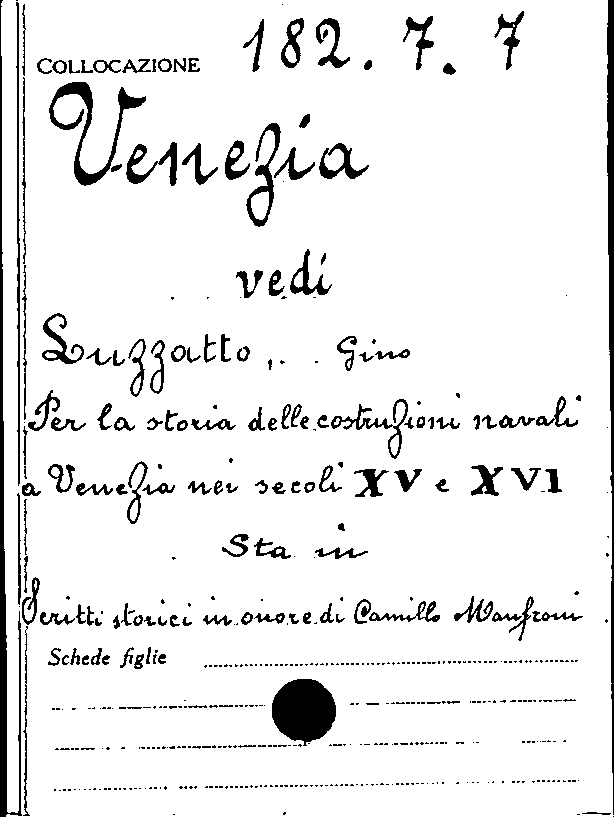 COLLOCAZIONE 182.7.7
Venezia
vedi
Luzzatto, Gino
Per la storia delle costruzioni navali
a Venezia nei secoli XV e XVI
Sta in
Scritti storici in onore di Camillo Manfroni
Schede figlie